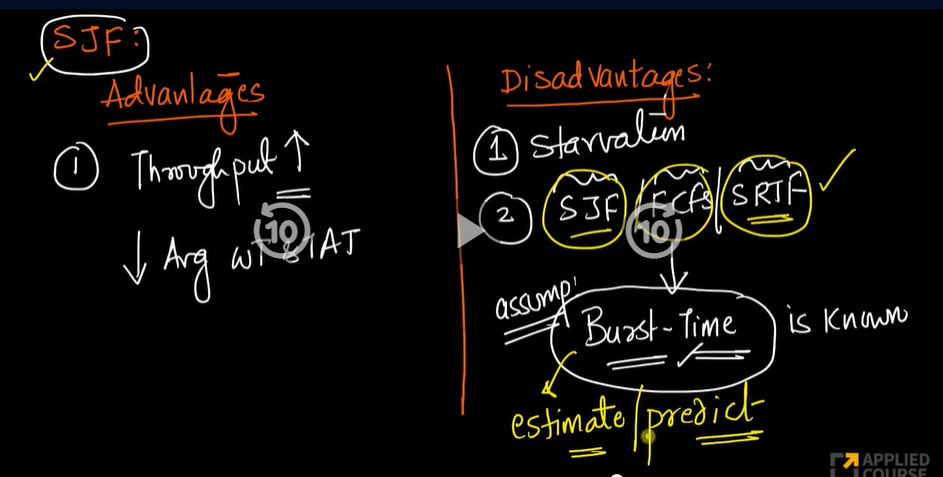 SJF:
Advantages
① Throughput ↑
↓ Avg WT & TAT
Disadvantages:
① Starvation
② SJF / FCFS / SRTF ✓
assump:
Burst-Time is known
estimate / predict
10
10
APPLIED
COURSE